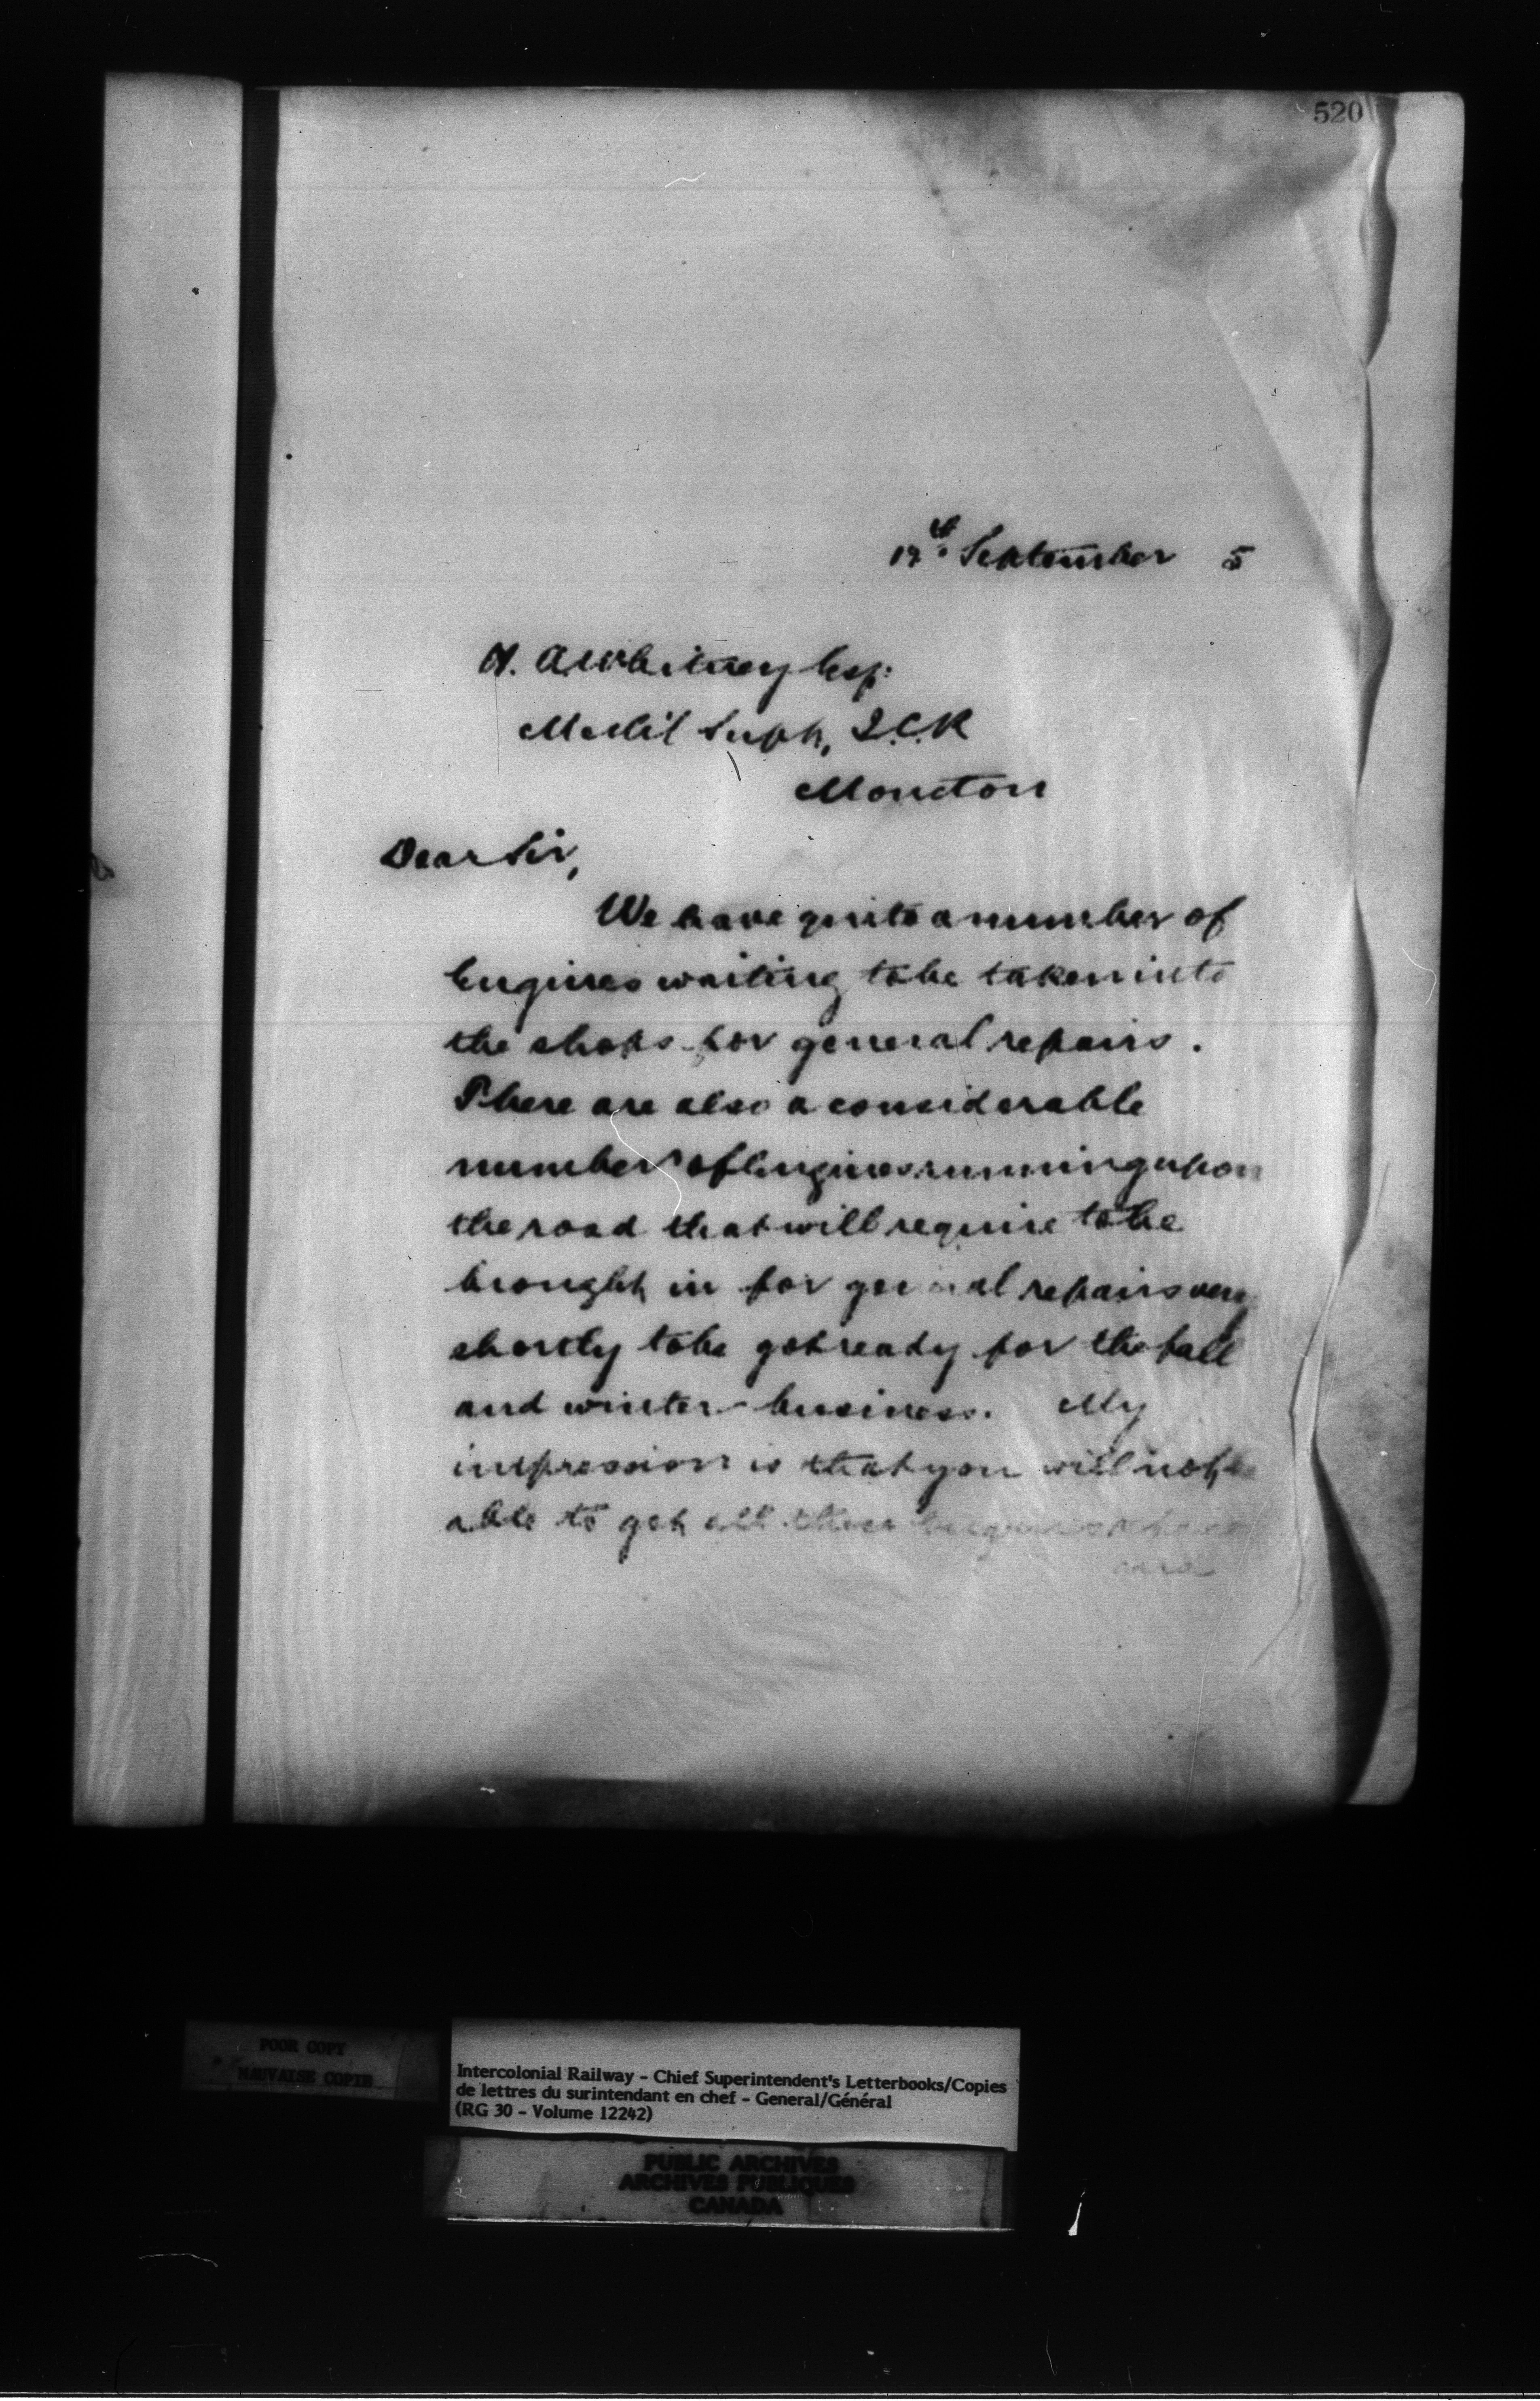 520
17th September 5
H. A. Whitney Esq:
Mech'l Supt, I.C.R
Moncton
Dear Sir,
We have quite a number of
Engines waiting to be taken into
the shops for general repairs.
There are also a considerable
number of Engines running upon
the road that will require to be
brought in for general repairs very
shortly to be got ready for the fall
and winter business. My
impression is that you will not be
able to get all these Engines
and
POOR COPY
MAUVAISE COPIE
Intercolonial Railway - Chief Superintendent's Letterbooks/Copies
de lettres du surintendant en chef - General/Général
(RG 30 - Volume 12242)
PUBLIC ARCHIVES
ARCHIVES PUBLIQUES
CANADA